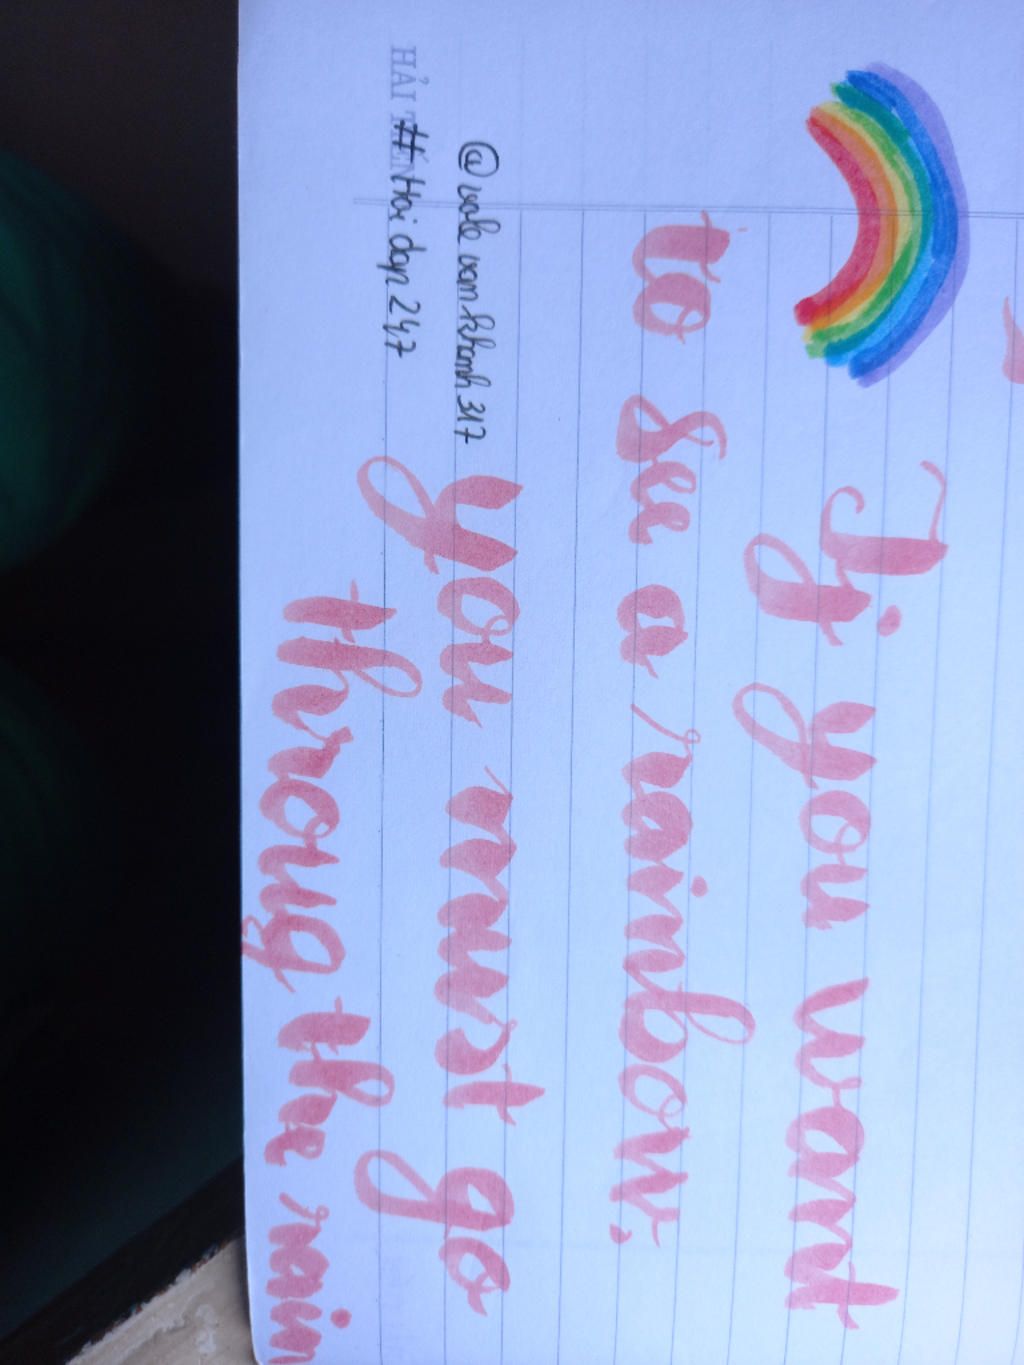 If you want
to see a rainbow,
you must go
throug the rain
@vale vankhanh317
#Hoi dap 247
HẢI TIẾN